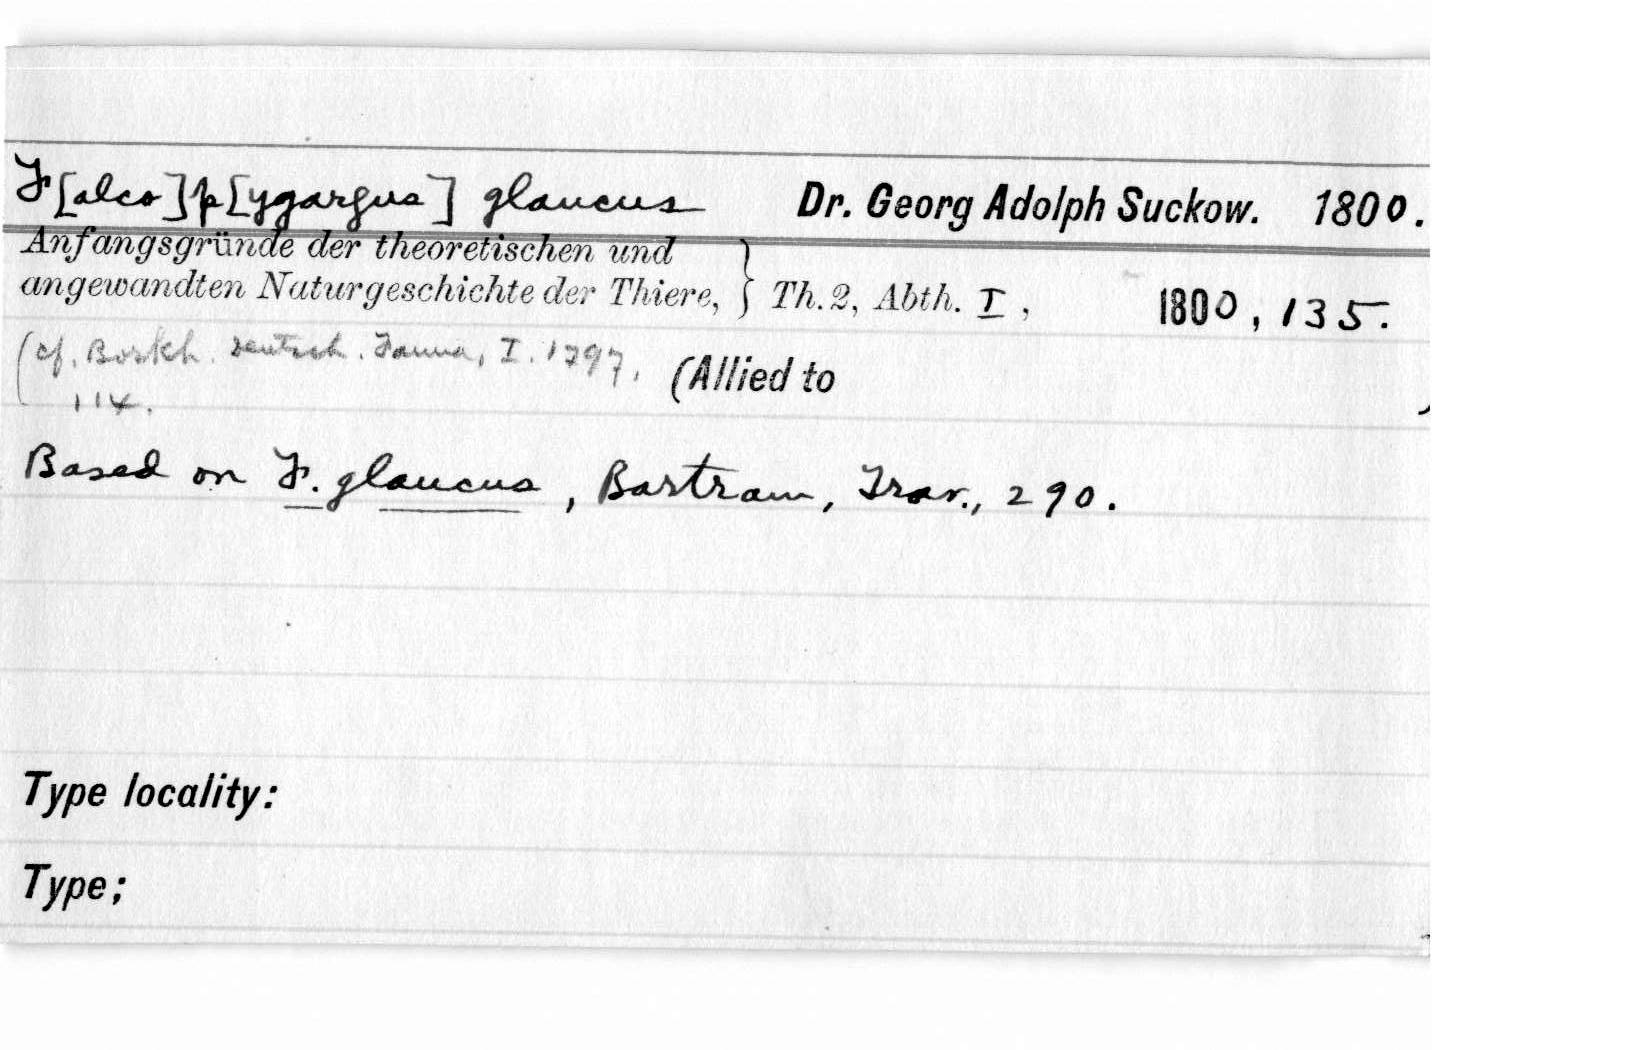 F[alco] p[ygargus] glaucus Dr. Georg Adolph Suckow. 1800.
Anfangsgründe der theoretischen und
angewandten Naturgeschichte der Thiere, } Th. 2, Abth. I, 1800, 135.
(cf. Borkh. Deutsch. Fauna, I. 1797,
114.
(Allied to )
Based on F. glaucus, Bartram, Trav., 290.
Type locality:
Type;